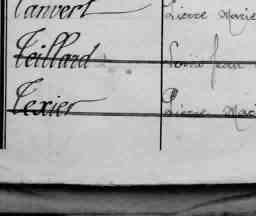 Tanvert Pierre Marie
Teillard Louis Jean
Texier Pierre Mari